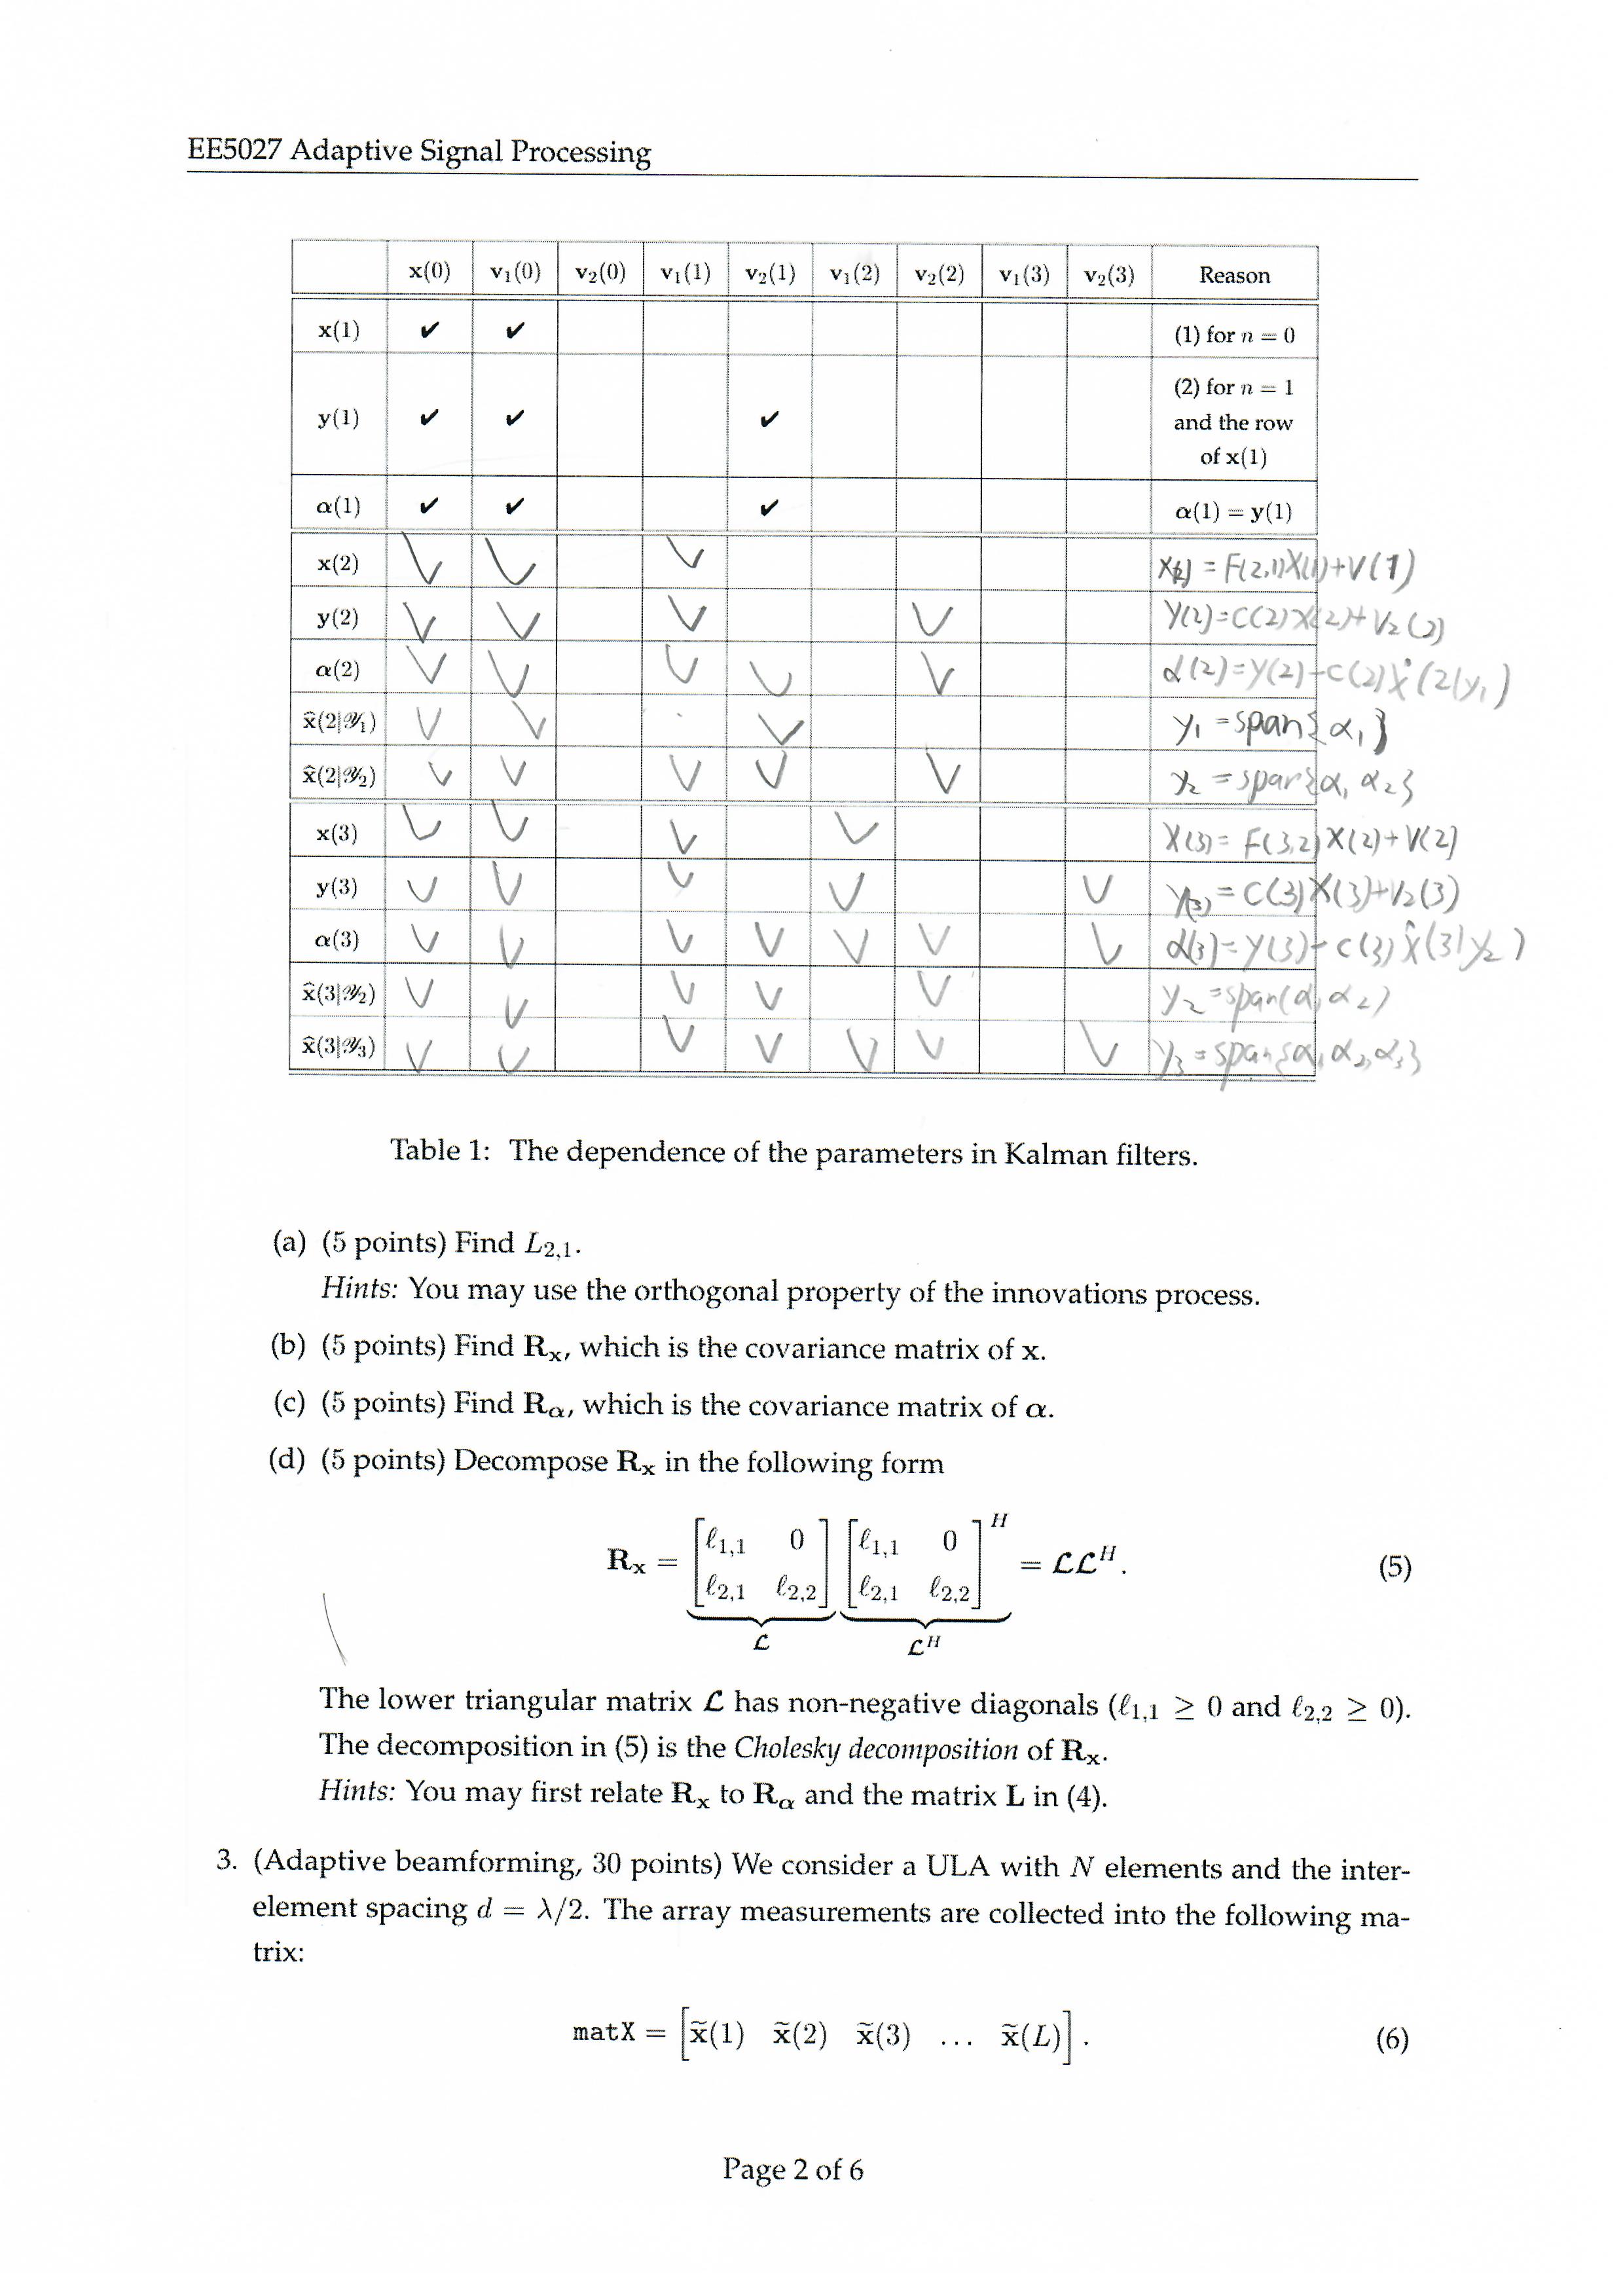 EE5027 Adaptive Signal Processing
x(0) v₁(0) v₂(0) v₁(1) v₂(1) v₁(2) v₂(2) v₁(3) v₂(3) Reason
x(1) ✔ ✔ (1) for n = 0
y(1) ✔ ✔ ✔ (2) for n = 1
and the row
of x(1)
α(1) ✔ ✔ ✔ α(1) = y(1)
x(2) V V V X(2) = F(2,1)X(1)+V(1)
y(2) V V V V Y(2)=C(2)X(2)+V₂(2)
α(2) V V V V V α(2)=Y(2)-C(2)x̂(2|y₁)
x̂(2|𝒴₁) V V V y₁ =span{α₁}
x̂(2|𝒴₂) V V V V V y₂ =span{α₁ α₂}
x(3) V V V V X(3)= F(3,2)X(2)+V(2)
y(3) V V V V V y(3) = C(3)X(3)+V₂(3)
α(3) V V V V V V V α(3)=Y(3)-C(3)x̂(3|y₂)
x̂(3|𝒴₂) V V V V V y₂ =span(α₁ α₂)
x̂(3|𝒴₃) V V V V V V V y₃ =span{α₁,α₂,α₃}
Table 1: The dependence of the parameters in Kalman filters.
(a) (5 points) Find L₂,₁.
Hints: You may use the orthogonal property of the innovations process.
(b) (5 points) Find Rₓ, which is the covariance matrix of x.
(c) (5 points) Find R_α, which is the covariance matrix of α.
(d) (5 points) Decompose Rₓ in the following form
Rₓ = [ℓ₁,₁ 0; ℓ₂,₁ ℓ₂,₂] [ℓ₁,₁ 0; ℓ₂,₁ ℓ₂,₂]^H = 𝓛𝓛^H. (5)
𝓛 𝓛^H
The lower triangular matrix 𝓛 has non-negative diagonals (ℓ₁,₁ ≥ 0 and ℓ₂,₂ ≥ 0).
The decomposition in (5) is the Cholesky decomposition of Rₓ.
Hints: You may first relate Rₓ to R_α and the matrix L in (4).
3. (Adaptive beamforming, 30 points) We consider a ULA with N elements and the inter-
element spacing d = λ/2. The array measurements are collected into the following ma-
trix:
matX = [x̃(1) x̃(2) x̃(3) ... x̃(L)]. (6)
Page 2 of 6